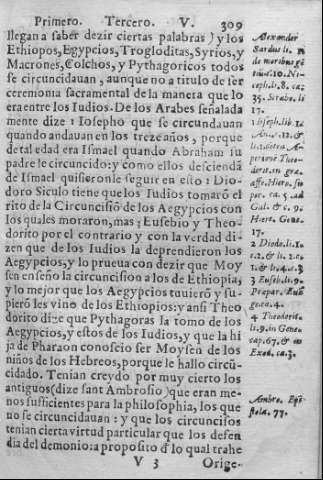 Primero. Tercero. V. 309
llegan a saber dezir ciertas palabras) y los
Ethiopos, Egypcios, Trogloditas, Syrios, y
Macrones, Colchos, y Pythagoricos todos
se circuncidauan, aunque no a titulo de ser
ceremonia sacramental de la manera que lo
era entre los Iudios. De los Arabes señalada
mente dize 1 Iosepho que se circundauan
quando andauan en los treze años, porque
de tal edad era Ismael quando Abraham su
padre le circuncido: y como ellos desciendã
de Ismael quisieronle seguir en esto: Diodoro
Siculo tiene que los Iudios tomarõ el
rito de la Circuncisiõ de los Aegypcios con
los quales moraron, mas 3 Eusebio y Theo
dorito por el contrario y con la verdad dizen
que de los Iudios la deprendieron los
Aegypcios, y lo prueua con dezir que Moy
sen enseño la circuncision a los de Ethiopia,
y lo mejor que los Aegypcios tuuierõ y supierõ
les vino de los Ethiopios: y ansi Theo
dorito dize que Pythagoras la tomo de los
Aegypcios, y estos de los Iudios, y que la hi
ja de Pharaon conoscio ser Moysen de los
niños de los Hebreos, porque le hallo circũ
cidado. Tenian creydo por muy cierto los
antiguos (dize sant Ambrosio) que eran menos
sufficientes para la philosophia, los que
no se circuncidauan: y que los circuncisos
tenian cierta virtud particular que los defen
dia del demonio: a proposito dlo qual trahe
V 3 Orige-
Alexander
Sardus li.
de moribus gẽ
Ioseph. li. 1
17.
2 Diodo. li. 1.
3 Euseb. li. 9.
Prepar. Euã
4 Theodorit.
li. 9. in Gene.
cap. 67. & in
Exod. ca. 3.
Ambro. Epi
stola. 77.